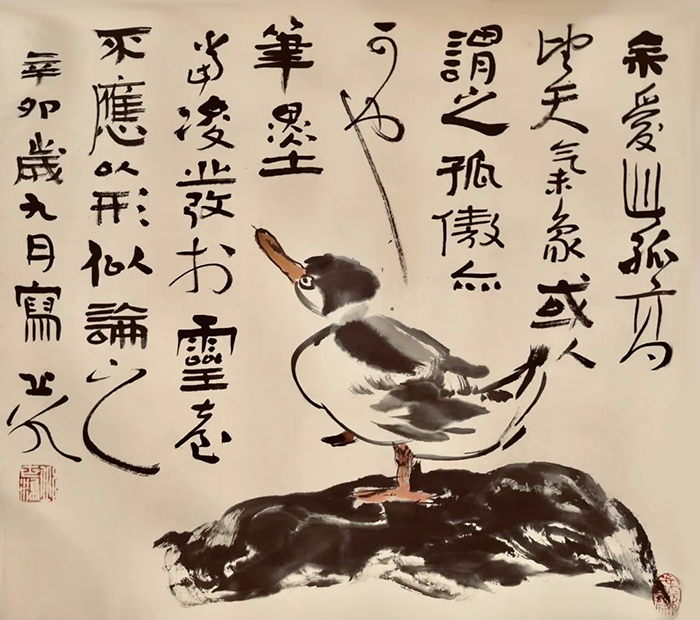 余愛此孤高
天氣象或人
謂之孤傲亦
可也
筆墨
當凌發於靈臺
不應以形似論之
辛卯歲九月寫